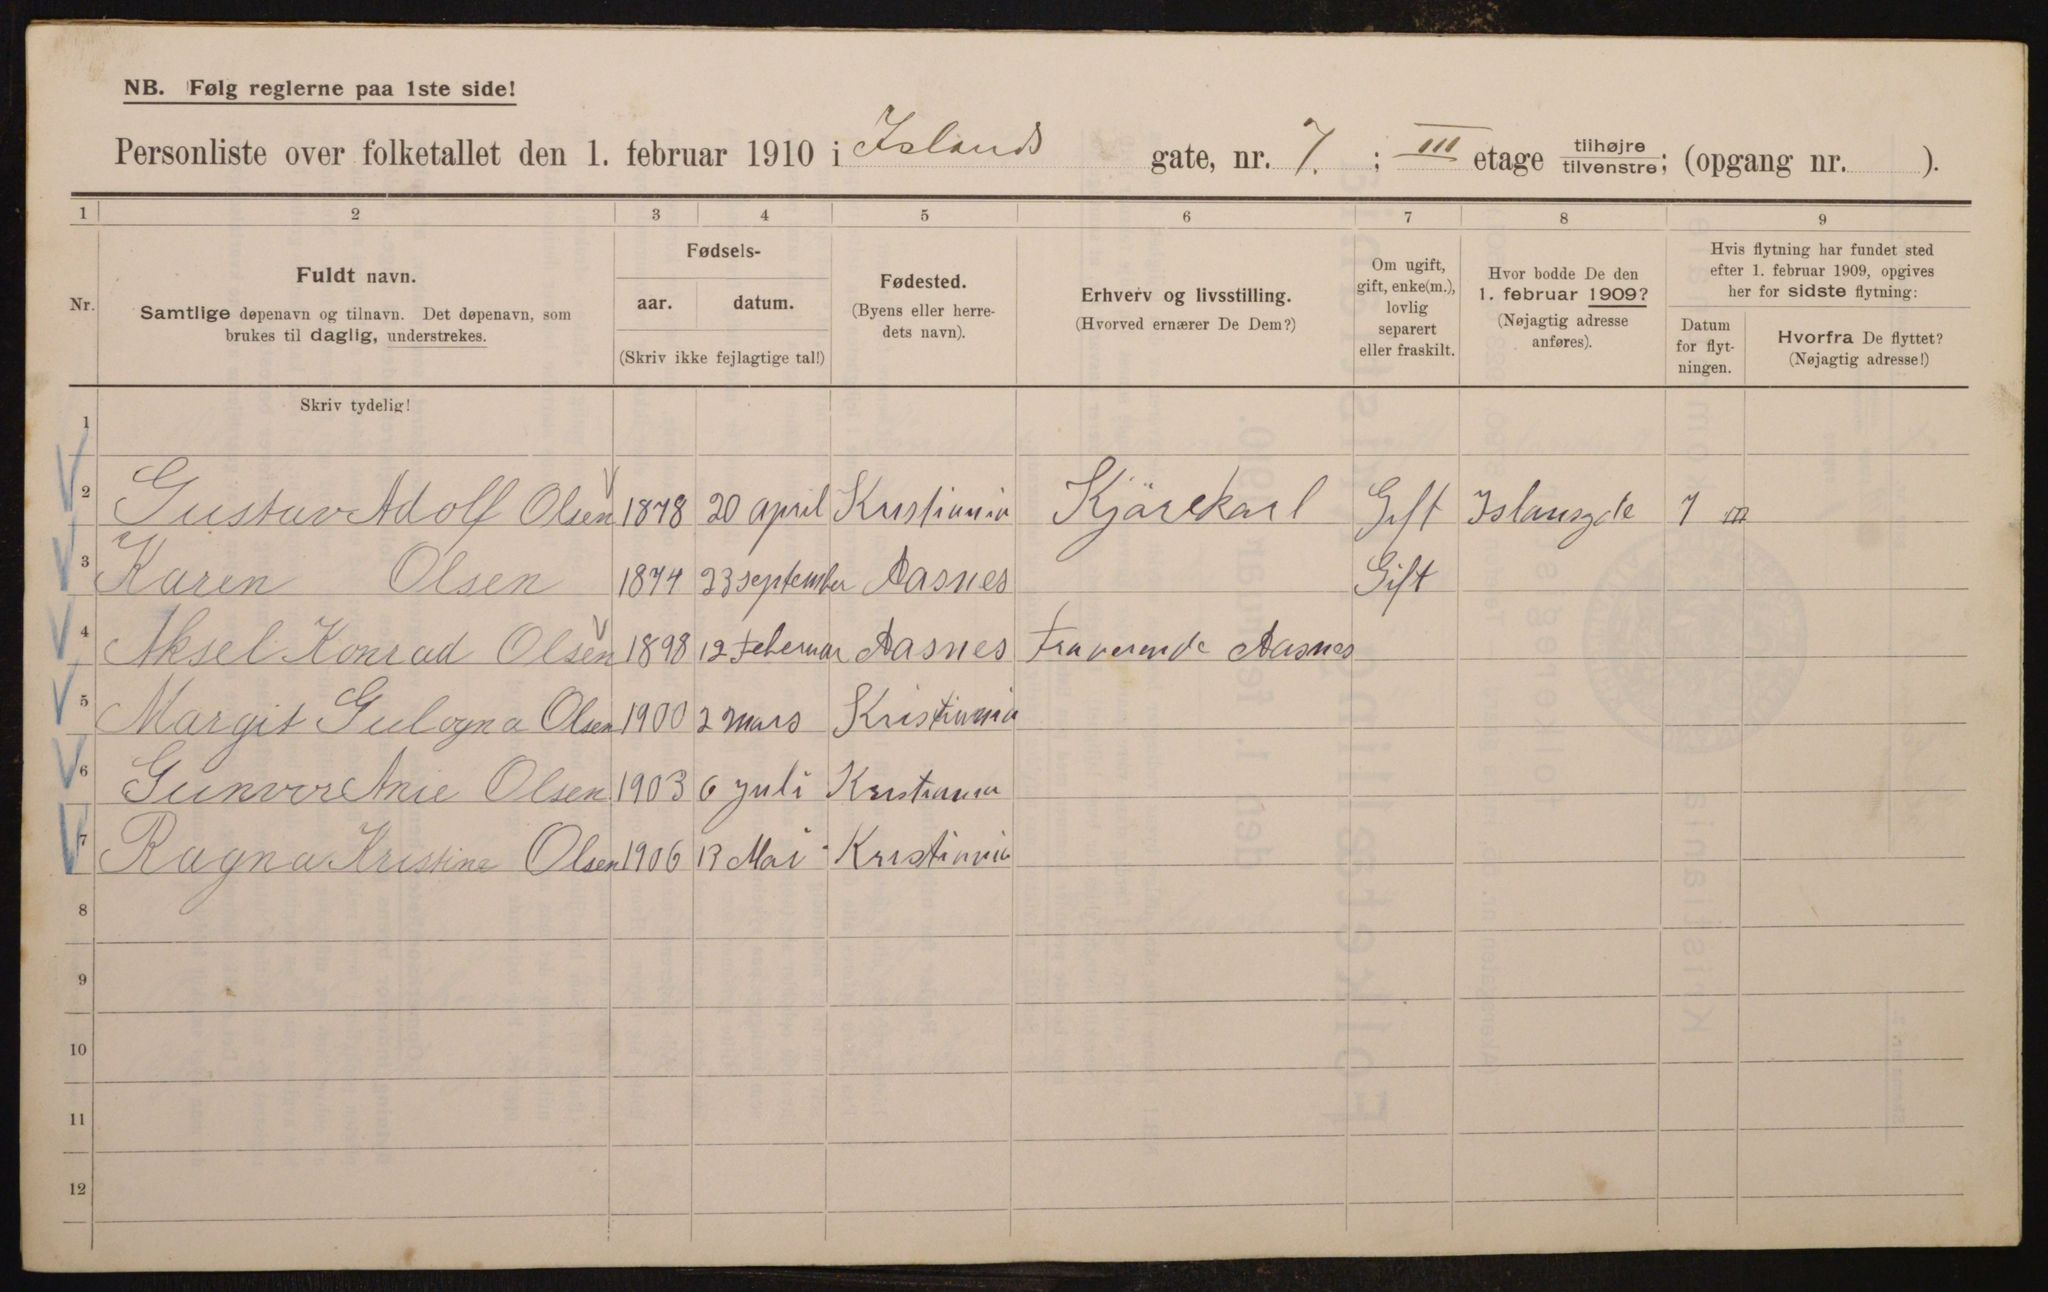 NB. Følg reglerne paa 1ste side!
Personliste over folketallet den 1. februar 1910 i Islands gate, nr. 7. ; III etage tilhøjre/tilvenstre; (opgang nr. ).
1 2 3 4 5 6 7 8 9
Nr.
Fuldt navn.
Samtlige døpenavn og tilnavn. Det døpenavn, som
brukes til daglig, understrekes.
Fødsels-
aar. datum.
(Skriv ikke fejlagtige tal!)
Fødested.
(Byens eller herre-
dets navn).
Erhverv og livsstilling.
(Hvorved ernærer De Dem?)
Om ugift,
gift, enke(m.),
lovlig
separert
eller fraskilt.
Hvor bodde De den
1. februar 1909?
(Nøjagtig adresse
anføres).
Hvis flytning har fundet sted
efter 1. februar 1909, opgives
her for sidste flytning:
Datum
for flyt-
ningen.
Hvorfra De flyttet?
(Nøjagtig adresse!)
Skriv tydelig!
1
2 Gustav Adolf Olsen 1878 20 april Kristiania Kjörekarl Gift Islansgde 7 III
3 Karen Olsen 1874 23 september Aasnes Gift
4 Aksel Konrad Olsen 1898 12 Februar Aasnes Fraverende Aasnes
5 Margit Gulogna Olsen 1900 2 mars Kristiania
6 Gunvor Anie Olsen 1903 6 juli Kristiania
7 Ragna Kristine Olsen 1906 13 Mai Kristiania
8
9
10
11
12